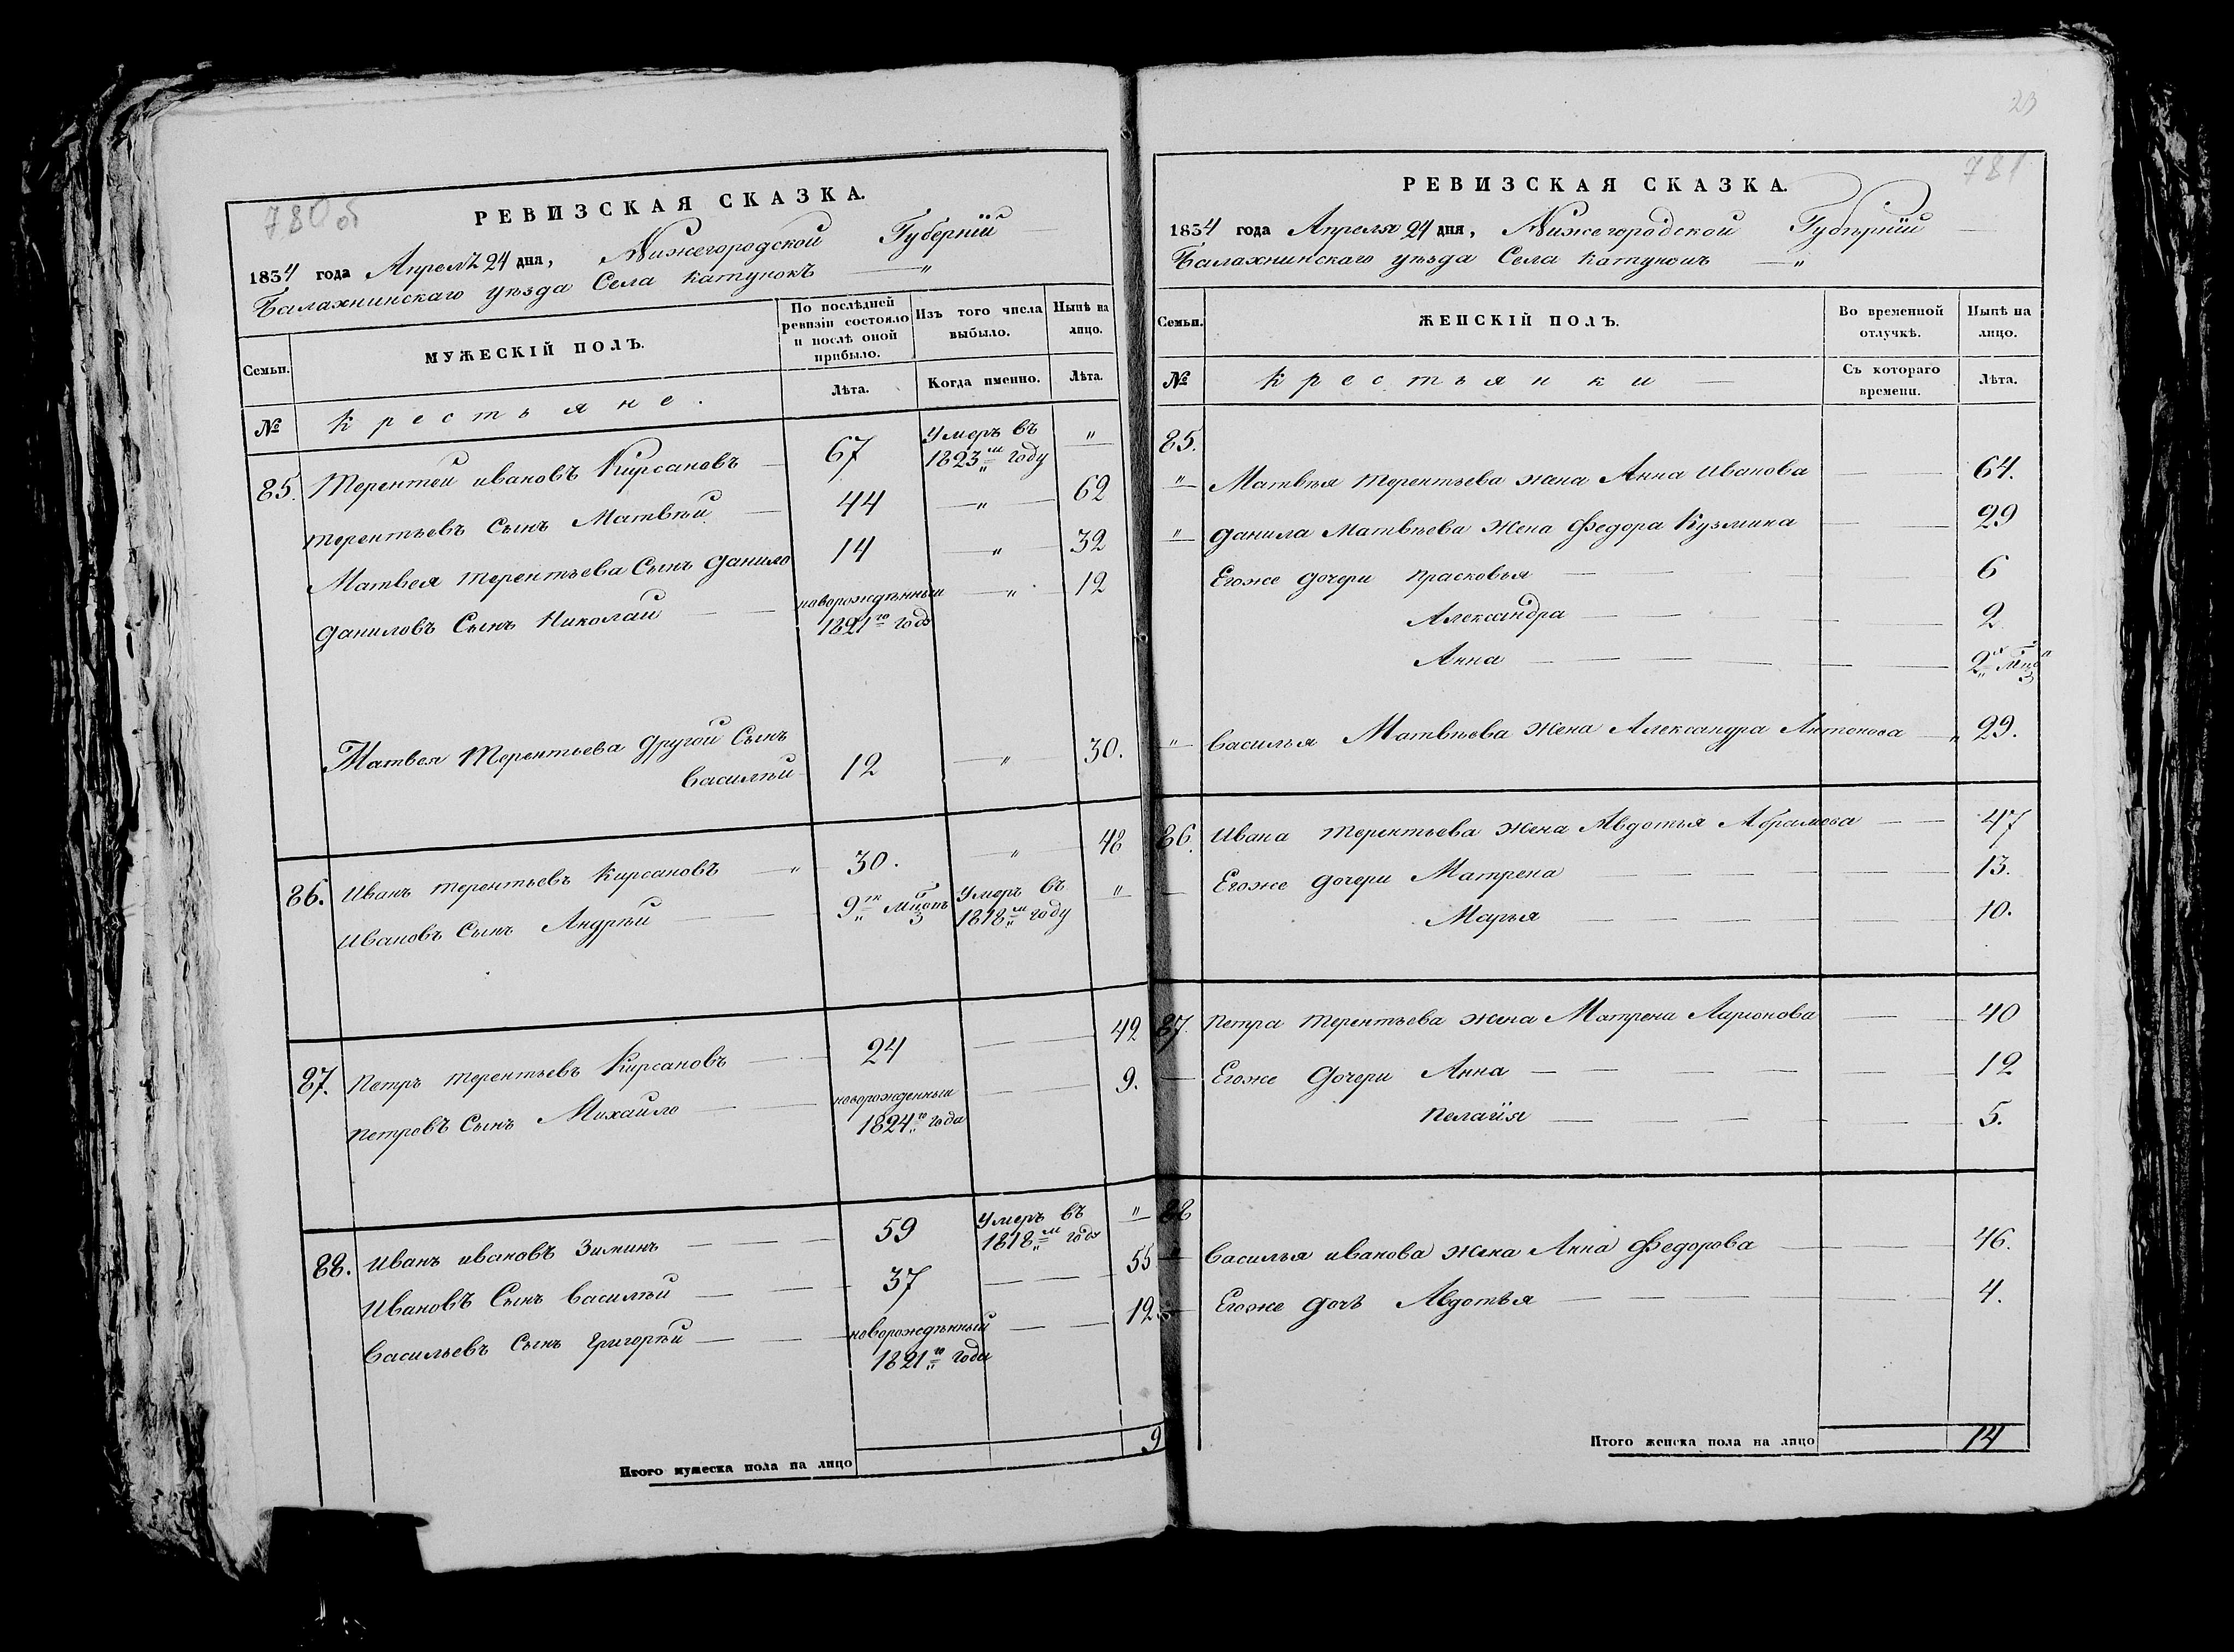 780 об
РЕВИЗСКАЯ СКАЗКА.
1834 года Апрелъ 24 дня, Нижегородской Губерніи
Балахнинскаго уѣзда Села Катунокъ "
Семьи.
МУЖЕСКІЙ ПОЛЪ.
По послѣдней ревизіи состояло и послѣ оной прибыло.
Изъ того числа выбыло.
Нынѣ на лицо.
№
Крестьяне.
Лѣта.
Когда именно.
Лѣта.
85. Терентей ивановъ Кирсановъ — 67 Умеръ въ 1823м году "
терентьевъ Сынъ Матвѣй — 44 — " — 62
Матвея терентьева Сынъ данило 14 — " — 32
даниловъ Сынъ Николай — — новорожденный 1821го года — " — 12
Матвея Терентьева другой Сынъ
василѣй 12 — " 30.
86. Иванъ терентьевъ Кирсановъ — " — 30. — " — 48
ивановъ Сынъ Андрѣй — — 9ти Мцовъ Умеръ въ 1818м году "
87. Петръ терентьевъ Кирсановъ — — 24 — — 49
петровъ Сынъ Михайло — — новорожденный 1824го года — — 9.
88. иванъ ивановъ Зиминъ — — — 59 Умеръ въ 1818м годъ "
ивановъ Сынъ василѣй — — — 37 — — — 55
васильевъ Сынъ григорѣй — — — новорожденный 1821го года — — 12
Итого мужеска пола на лицо 9
23
781
РЕВИЗСКАЯ СКАЗКА.
1834 года Апреля 24 дня, Нижегородской Губерніи —
Балахнинскаго уѣзда Села Катунокъ — "
Семьи.
ЖЕНСКІЙ ПОЛЪ.
Во временной отлучкѣ.
Нынѣ на лицо.
№
Крестьянки —
Съ котораго времени.
Лѣта.
85.
" Матвѣя терентьева жена Анна иванова — — 64.
" данила Матвѣева жена Федора Кузмина — — 29
Егоже дочери прасковья — — — 6
Александра — — — — 2
Анна — — — — — 2х Мцовъ
" василья Матвѣева жена Александра Антонова — " 29.
86. ивана терентьева жена Авдотья Абрамова — — 47
— Егоже дочери Матрена — — — — 13.
Марья — — — — — 10.
87. петра терентьева жена Матрена Ларионова — — 40
— Егоже дочери Анна — — — — — 12
пелагия — — — — — 5.
88
— василья иванова жена Анна Федорова — — 46.
— Егоже дочь Авдотья — — — — 4.
Итого женска пола на лицо 14